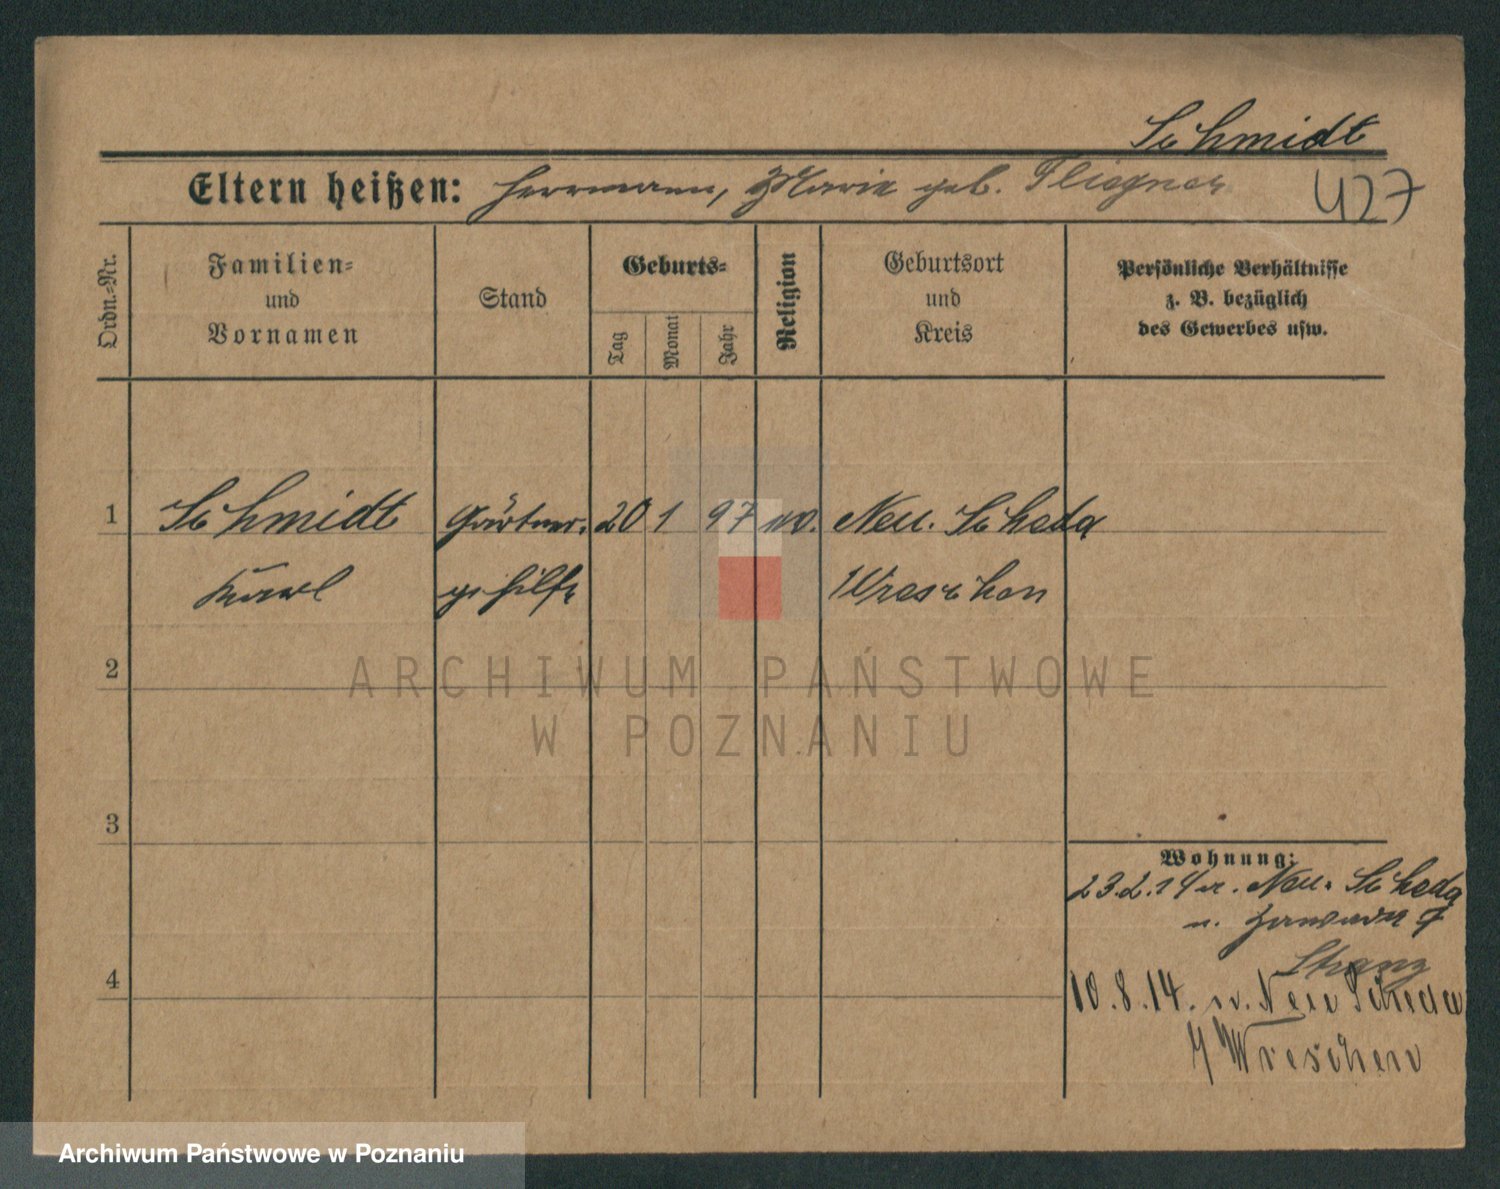 Schmidt
Eltern heißen: Herrmann, Marie geb. Fliegner
427
Ordn.-Nr.
Familien-
und
Vornamen
Stand
Geburts-
Tag
Monat
Jahr
Religion
Geburtsort
und
Kreis
Persönliche Verhältnisse
z. B. bezüglich
des Gewerbes usw.
1 Schmidt Gärtner- 20 1 97 Neu. Scheda
Karl gehilfe Wreschen
2
3
4
Wohnung:
23.2.14 Neu. Scheda
n.
10.8.14. Neu Scheda
Wreschen
ARCHIWUM PAŃSTWOWE
W POZNANIU
Archiwum Państwowe w Poznaniu